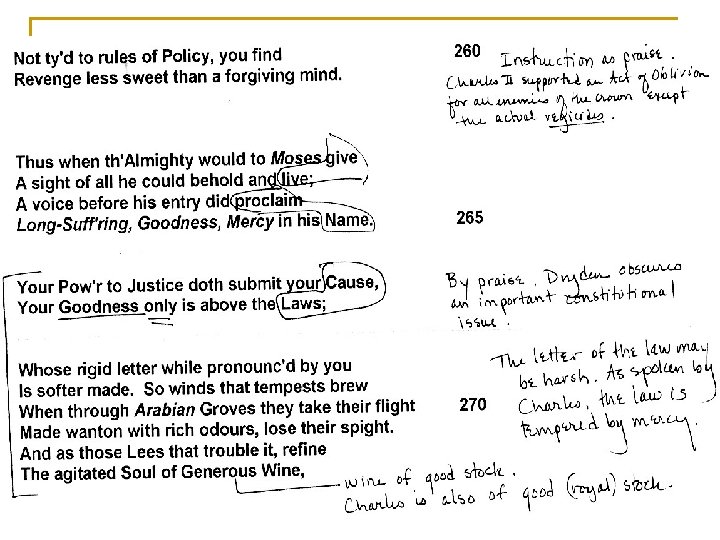 Not ty'd to rules of Policy, you find 260
Revenge less sweet than a forgiving mind.
Instruction as praise.
Charles II supported an Act of Oblivion
for all enemies of the crown except
the actual regicides.
Thus when th'Almighty would to Moses give
A sight of all he could behold and live;
A voice before his entry did proclaim
Long-Suff'ring, Goodness, Mercy in his Name. 265
Your Pow'r to Justice doth submit your Cause,
Your Goodness only is above the Laws;
By praise, Dryden obscures
an important constitutional
issue.
Whose rigid letter while pronounc'd by you
Is softer made. So winds that tempests brew
When through Arabian Groves they take their flight 270
Made wanton with rich odours, lose their spight.
And as those Lees that trouble it, refine
The agitated Soul of Generous Wine,
The letter of the law may
be harsh. As spoken by
Charles, the law is
tempered by mercy.
wine of good stock.
Charles is also of good (royal) stock.